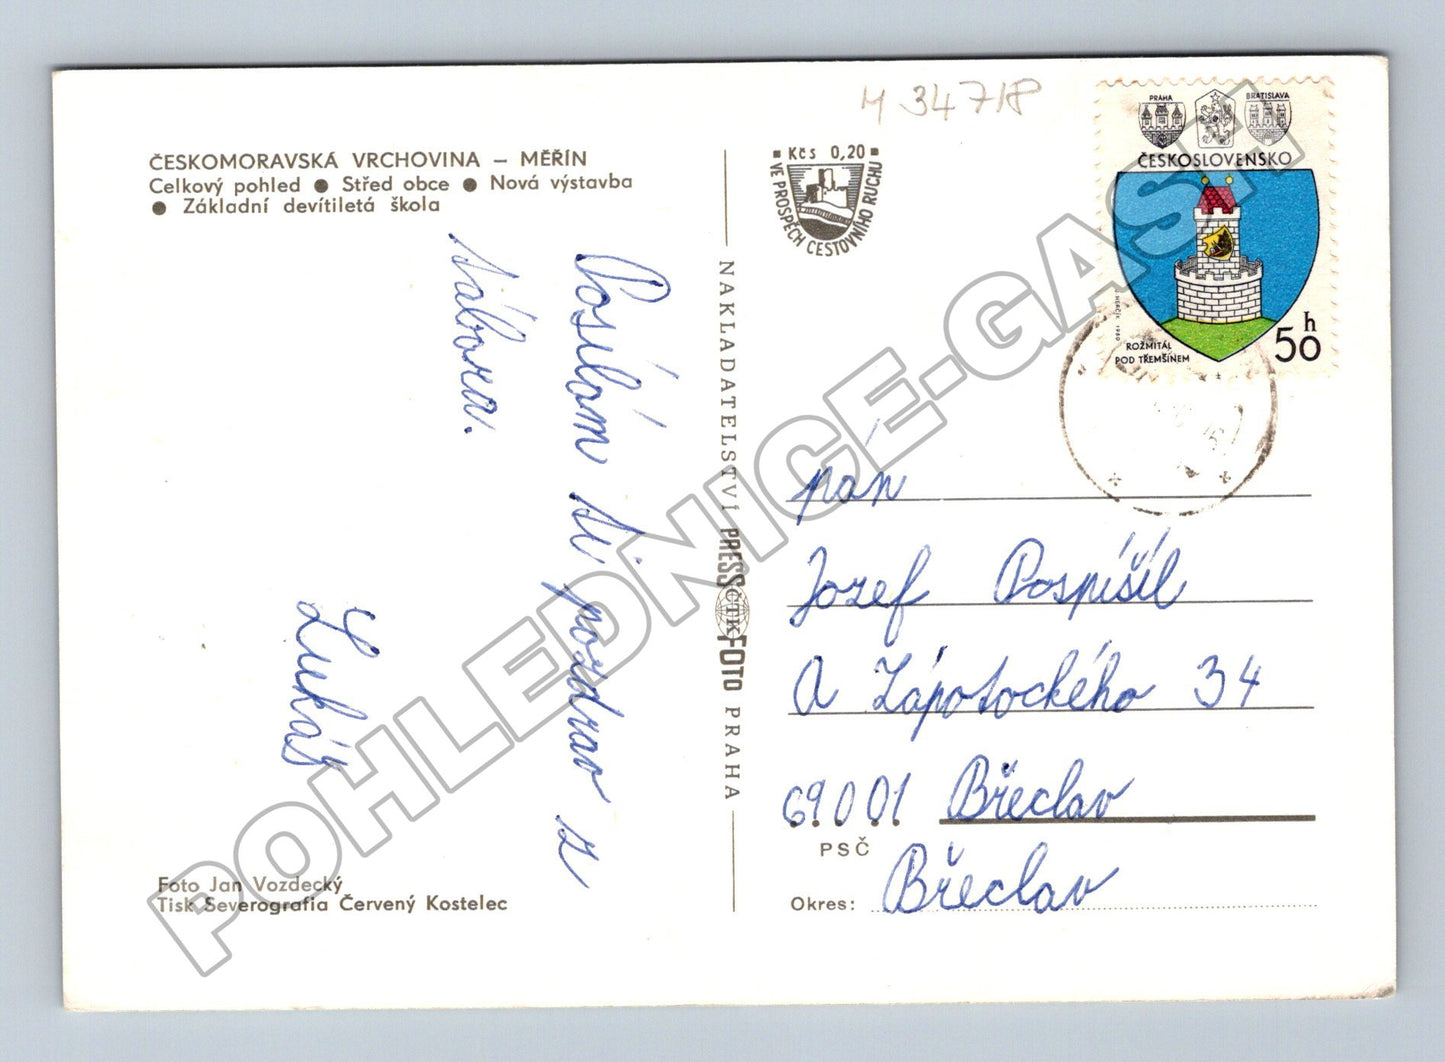 M 34718
ČESKOMORAVSKÁ VRCHOVINA – MĚŘÍN
Celkový pohled ● Střed obce ● Nová výstavba
● Základní devítiletá škola
Posílám ti pozdrav z
tábora.
Lukáš
Foto Jan Vozdecký
Tisk Severografia Červený Kostelec
NAKLADATELSTVÍ PRESSFOTO PRAHA
ČTK
Kčs 0,20
VE PROSPĚCH CESTOVNÍHO RUCHU
PRAHA
BRATISLAVA
ČESKOSLOVENSKO
ROŽMITÁL
POD TŘEMŠÍNEM
50 h
pán
Jozef Pospíšíl
A Zápotockého 34
69001 Břeclav
PSČ
Okres: Břeclav
POHLEDNICE-GASH